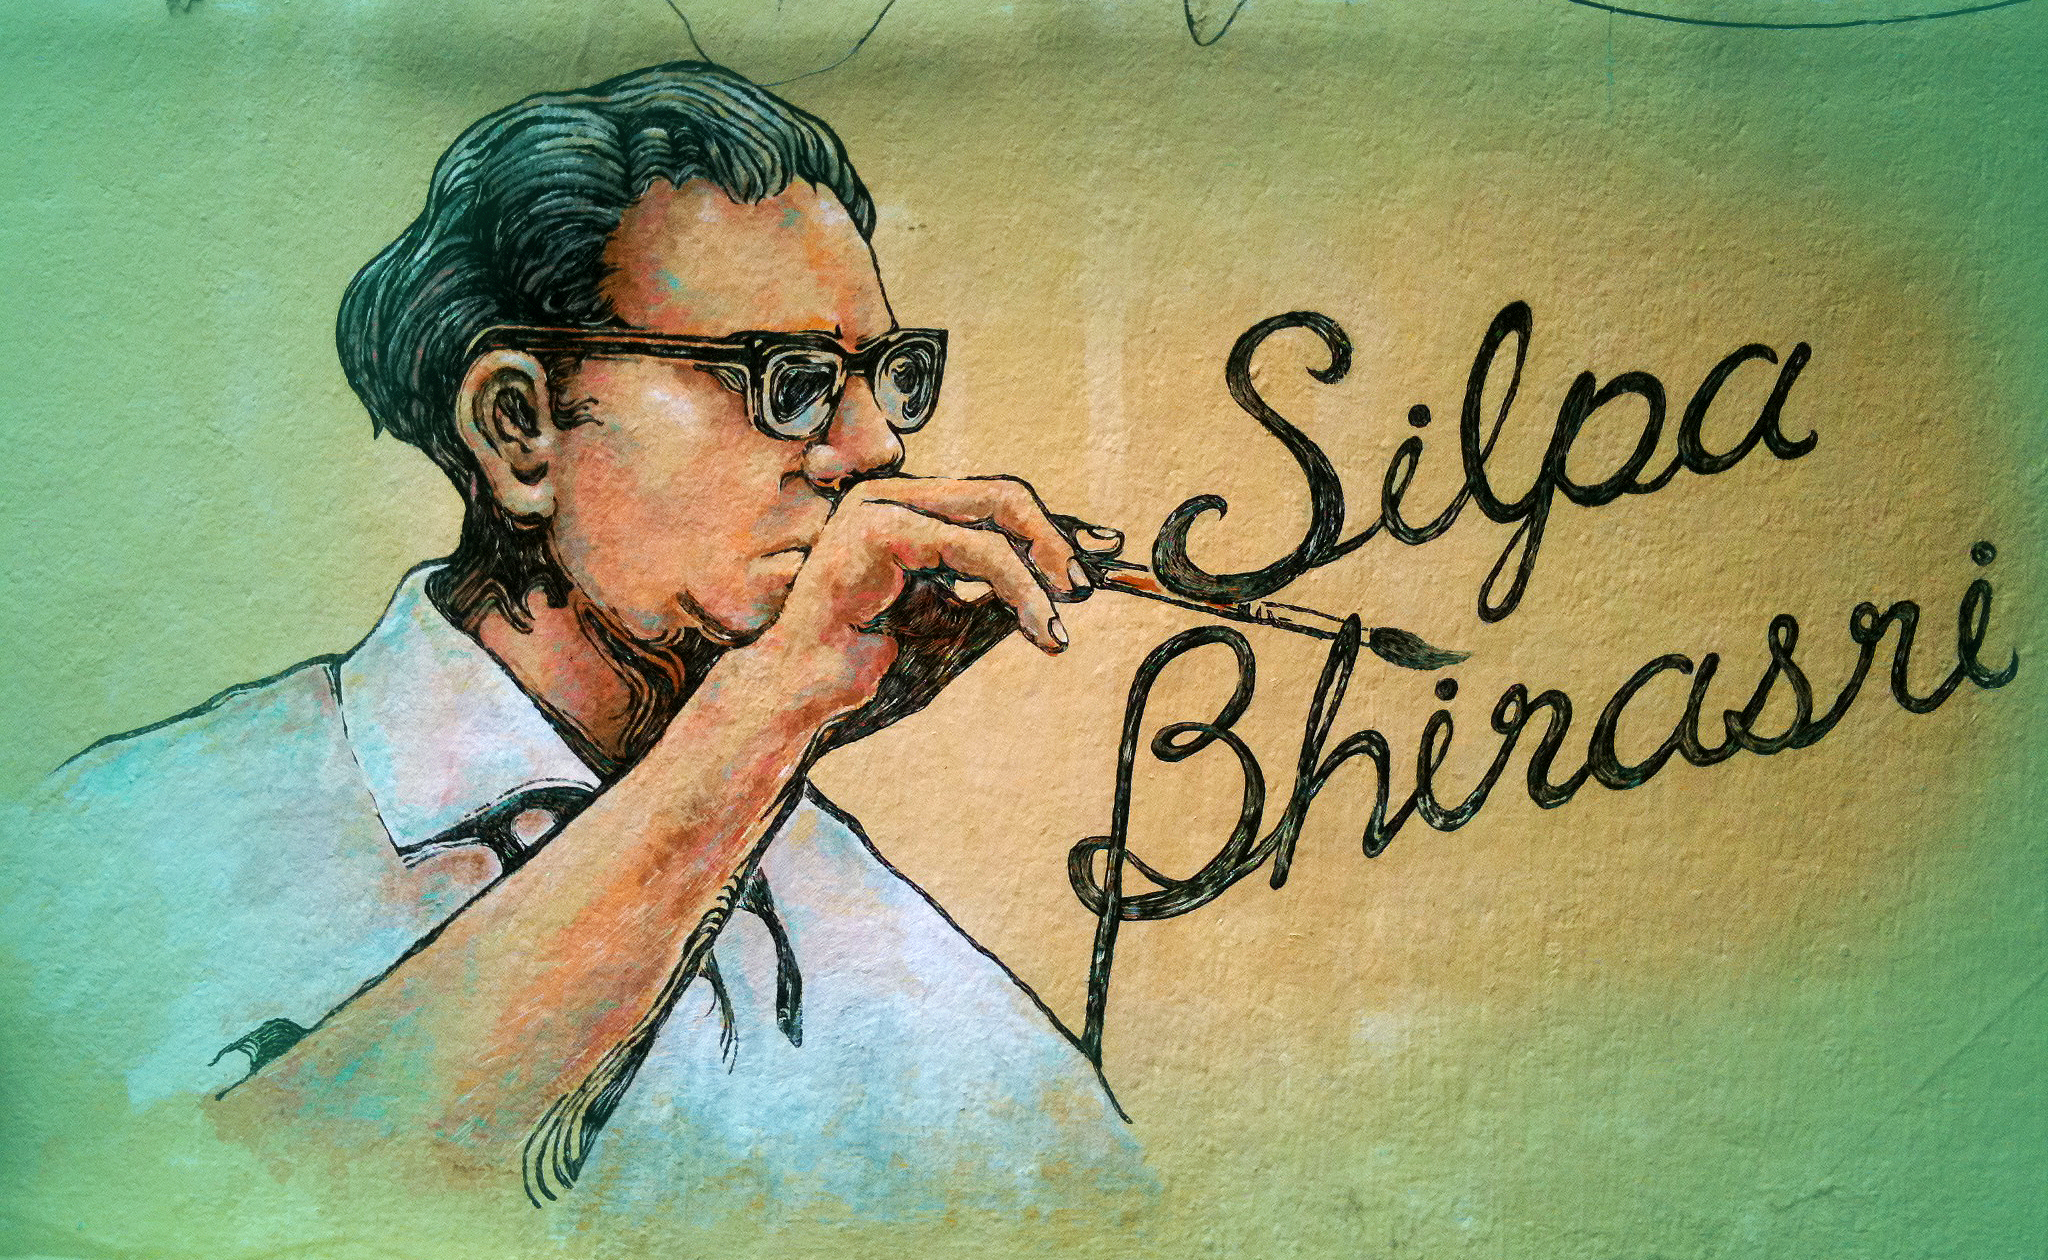 Silpa
Bhirasri